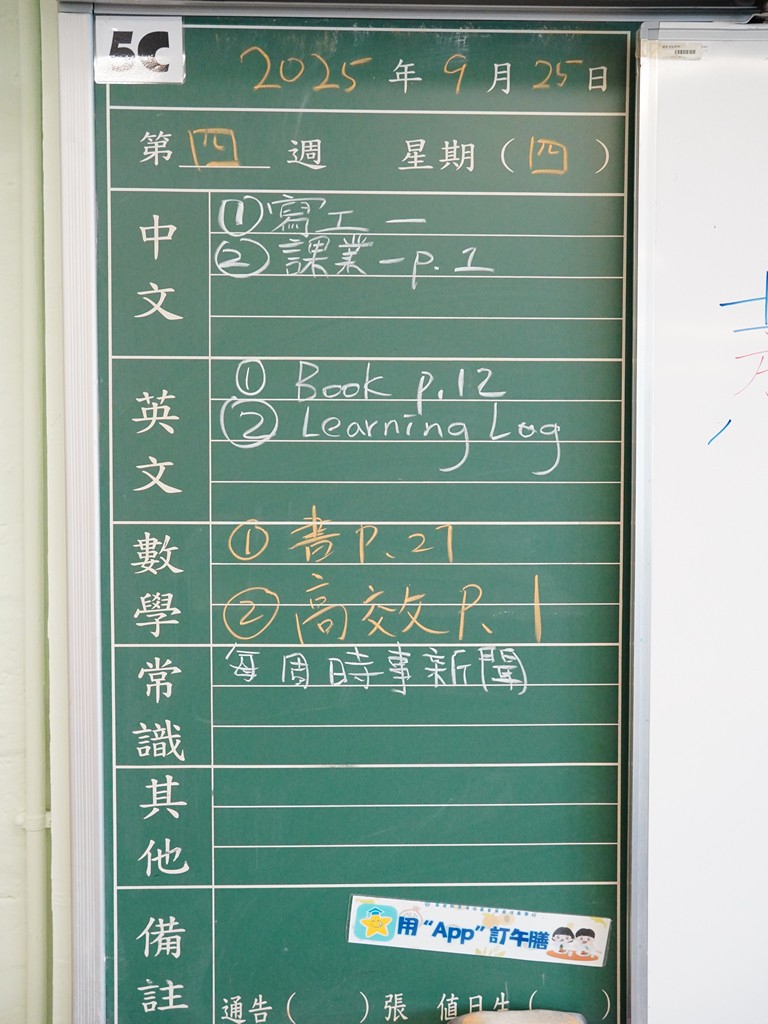 5C
2025年9月25日
第四週 星期（四）
中文
①寫工一
②課業一p.1
英文
① Book p.12
② Learning Log
數學
① 書P.27
② 高效P.1
常識
每周時事新聞
其他
備註
用“App”訂午膳
通告（ ）張 值日生（ ）